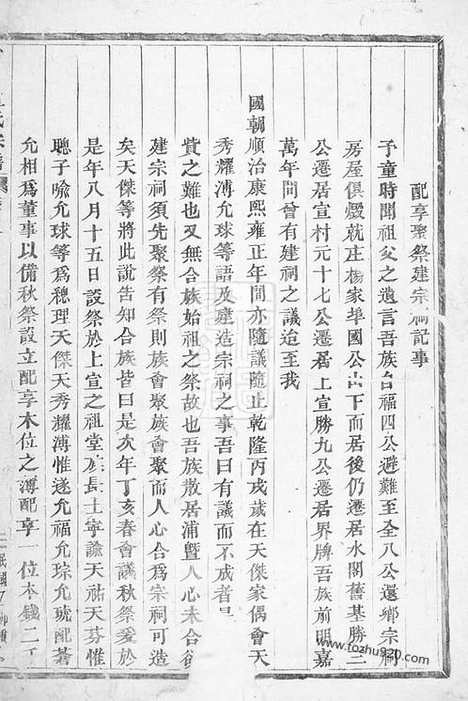 配享聖祭建宗祠記事
予童時聞祖父之遺言吾族自福四公避難至全八公還鄉宗祠
房屋俱燬就庄楊家埠國公山下而居後仍遷居水閣舊基勝三
公遷居宣村元十七公遷居上宣勝九公遷居界牌吾族前明嘉
萬年間曾有建祠之議迨至我
國朝順治康熙雍正年間亦隨議隨止乾隆丙戌歲在天傑家偶會天
秀耀溥允球等語及建造宗祠之事吾曰有議而不成者
貲之難也又無合族始祖之祭故也吾族散居浦暨人心未合
建宗祠須先聚祭有祭則族會聚族會聚而人心合爲宗祠可造
矣天傑等將此說告知合族皆曰是次年丁亥春會議秋祭爰於
是年八月十五日設祭於上宣之祖堂族長士寧諭天祐天芬惟
聰子喻允球等爲總理天傑天秀耀溥惟遂允福允琮允琥配蒼
允相爲董事以備秋祭設立配享木位之溥配享一位本錢二
氏宗譜
民國
www.fozhu920.com